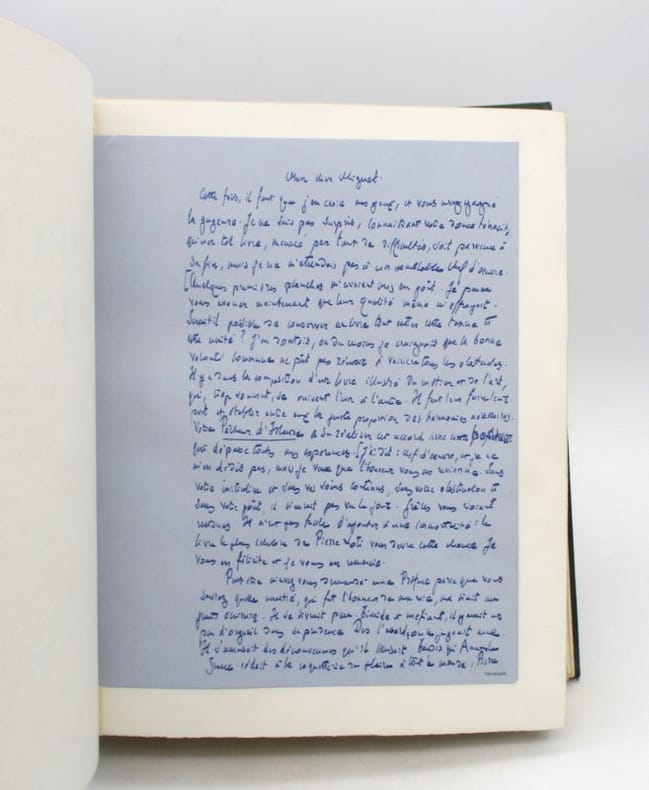 Mon cher Miguet.
Cette fois, il faut que j'en croie mes yeux, et vous avez gagné
la gageure. Je ne suis pas surpris, connaissant votre douce ténacité,
qu'un tel livre, menacé par tant de difficultés, soit parvenu à
sa fin, mais je ne m'attendais pas à un semblable chef d'œuvre.
[Quelques premières planches m'avaient mis en goût. Je puis
vous avouer maintenant que leur qualité même m'effrayait.
Serait-il possible de conserver au livre tout entier cette tenue et
cette unité ? J'en doutais, ou du moins je craignais que la bonne
volonté commune ne pût pas réussir à vaincre tous les obstacles.
Il y a dans la composition d'un livre illustré du métier et de l'art,
qui, trop souvent, se nuisent l'un à l'autre. Il faut leur faire leur
part et établir entre eux la juste proportion des harmonies nécessaires.
Votre Pêcheur d'Islande a su réaliser cet accord avec une
qui dépasse toutes mes espérances. [J'ai dit : chef d'œuvre, et je ne
m'en dédis pas, mais je veux que l'honneur vous en revienne. Sans
votre initiative et sans vos soins continus, sans votre obstination et
sans votre goût, il n'aurait pas vu le jour. Grâces vous soient
rendues. Il n'est pas facile d'ajouter à une immortalité : le
livre le plus célèbre de Pierre Loti vous devra cette chance. Je
vous en félicite et je vous en remercie.
Peut-être m'avez-vous demandé une Préface parce que vous
saviez quelle amitié, qui fut l'honneur de ma vie, me liait au
grand écrivain. Il se livrait peu. Timide et méfiant, il y avait un
peu d'orgueil dans sa prudence. Dès l'abord, on le jugeait
Il s'amusait des déconvenues qu'il causait tandis qu'Anatole
France cédait à la coquetterie de plaire à tout le monde, Pierre